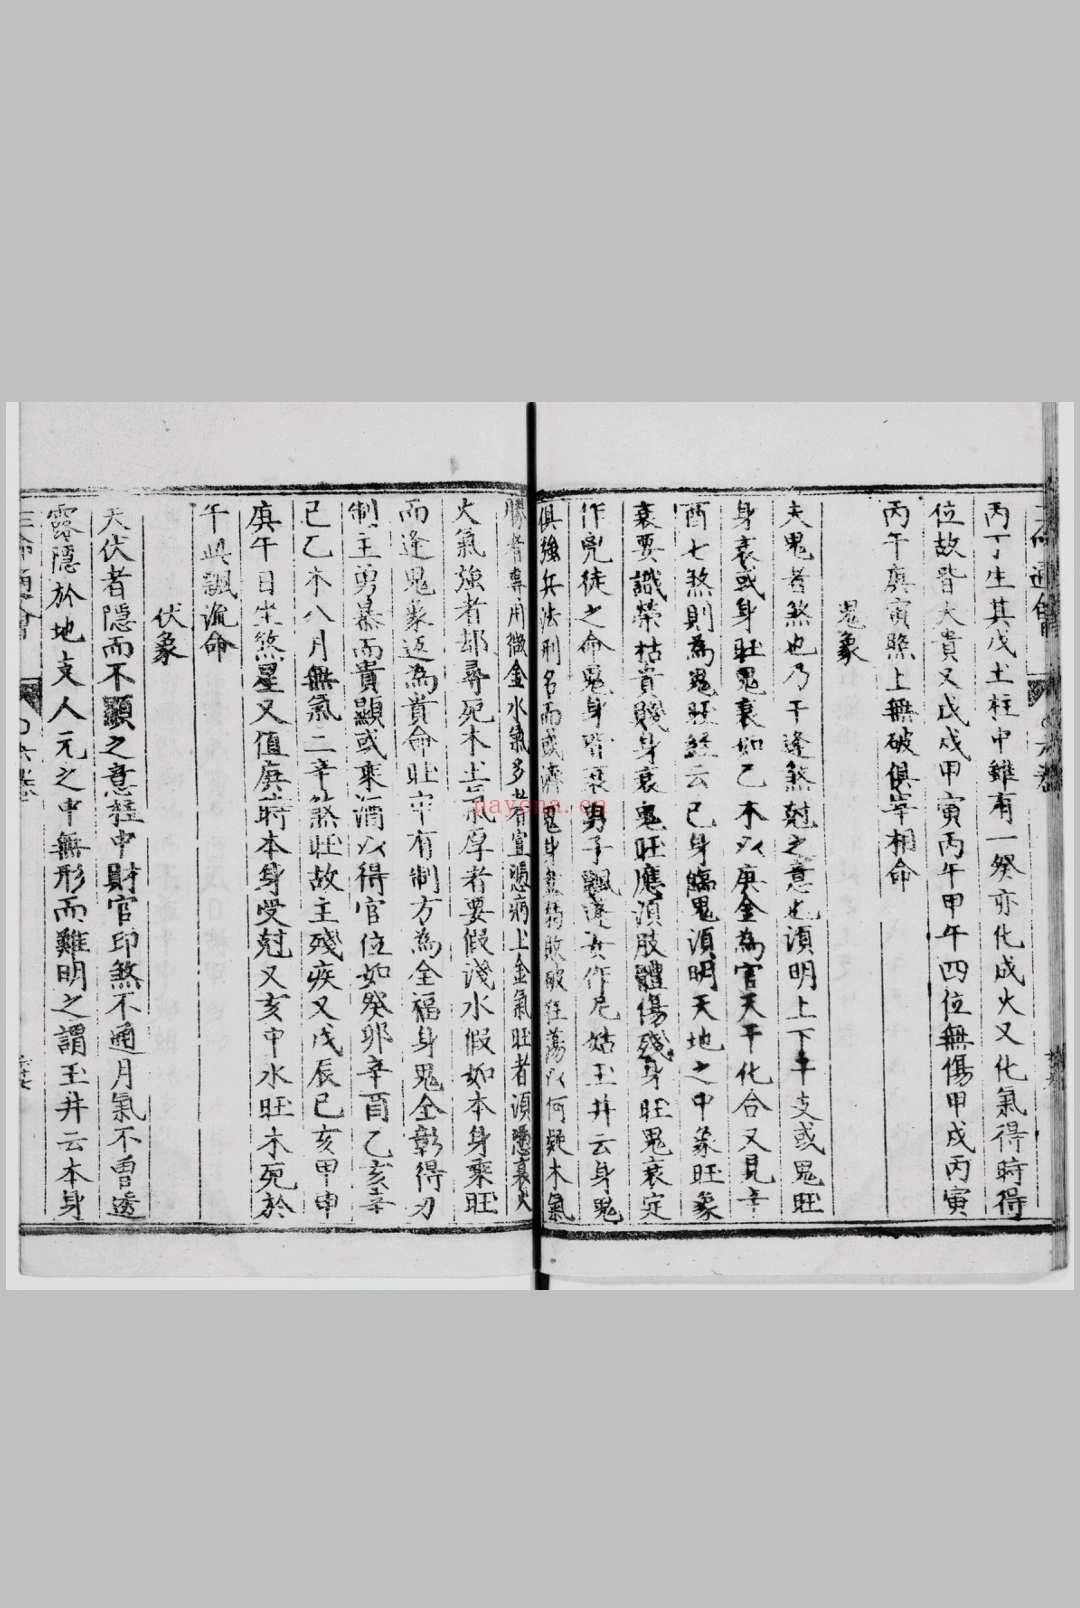 三命通會
丙丁生其戊土柱中雖有一癸亦化成火又化氣得時得
位故皆大貴又戊戌甲寅丙午甲午四位無傷甲戌丙寅
丙午庚寅照上無破俱宰相命
鬼象
夫鬼者煞也乃干逢煞尅之意也須明上下干支或鬼旺
身衰或身旺鬼衰如乙木以庚金為官天干化合又見辛
酉七煞則為鬼旺經云己身臨鬼須明天地之中象旺象
衰要識榮枯貴賤身衰鬼旺應須肢體傷殘身旺鬼衰定
作兇徒之命鬼身皆衰男子飄蓬女作尼姑玉井云身鬼
俱強兵法刑名而或濟鬼身敗破狂蕩以何疑木氣
勝者專用微金水氣多者宜憑病上金氣旺者須憑衰火
火氣強者却尋死木土氣厚者要假淺水假如本身乘旺
而逢鬼象返為貴命旺中有制方為全福身鬼全彰得刃
制主勇暴而貴顯或乘酒以得官位如癸卯辛酉乙亥辛
巳乙木八月無氣二辛煞旺故主殘疾又戊辰己亥甲申
庚午日坐煞星又值庚時本身受尅又亥中水旺木死於
午與飄流命
伏象
夫伏者隱而不顯之意柱中財官印煞不通月氣不曾透
露隱於地支人元之中無形而難明之謂玉井云本身
三命通會
nayona.cn